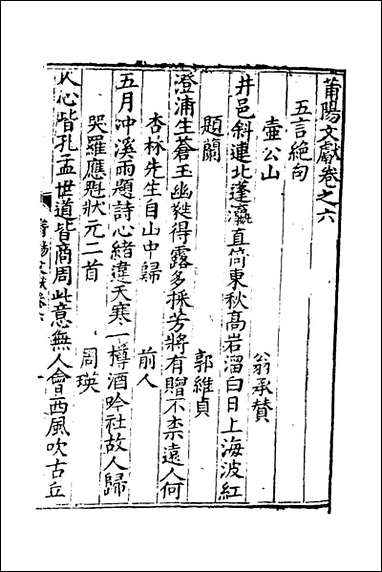 莆陽文獻卷之六
五言絶句
壺公山 翁承賛
井邑斜連北蓬瀛直筒東秋髙岩溜白日上海波紅
題蘭 郭維貞
澄浦生蒼玉幽㲯得露多採芳將有贈不柰遠人何
杏林先生自山中歸 前人
五月冲溪雨題詩心緒違天寒一樽酒吟社故人歸
哭羅應魁狀元二首 周瑛
人心皆孔孟世道皆商周此意無人會西風吹古丘
莆陽文獻卷六 一